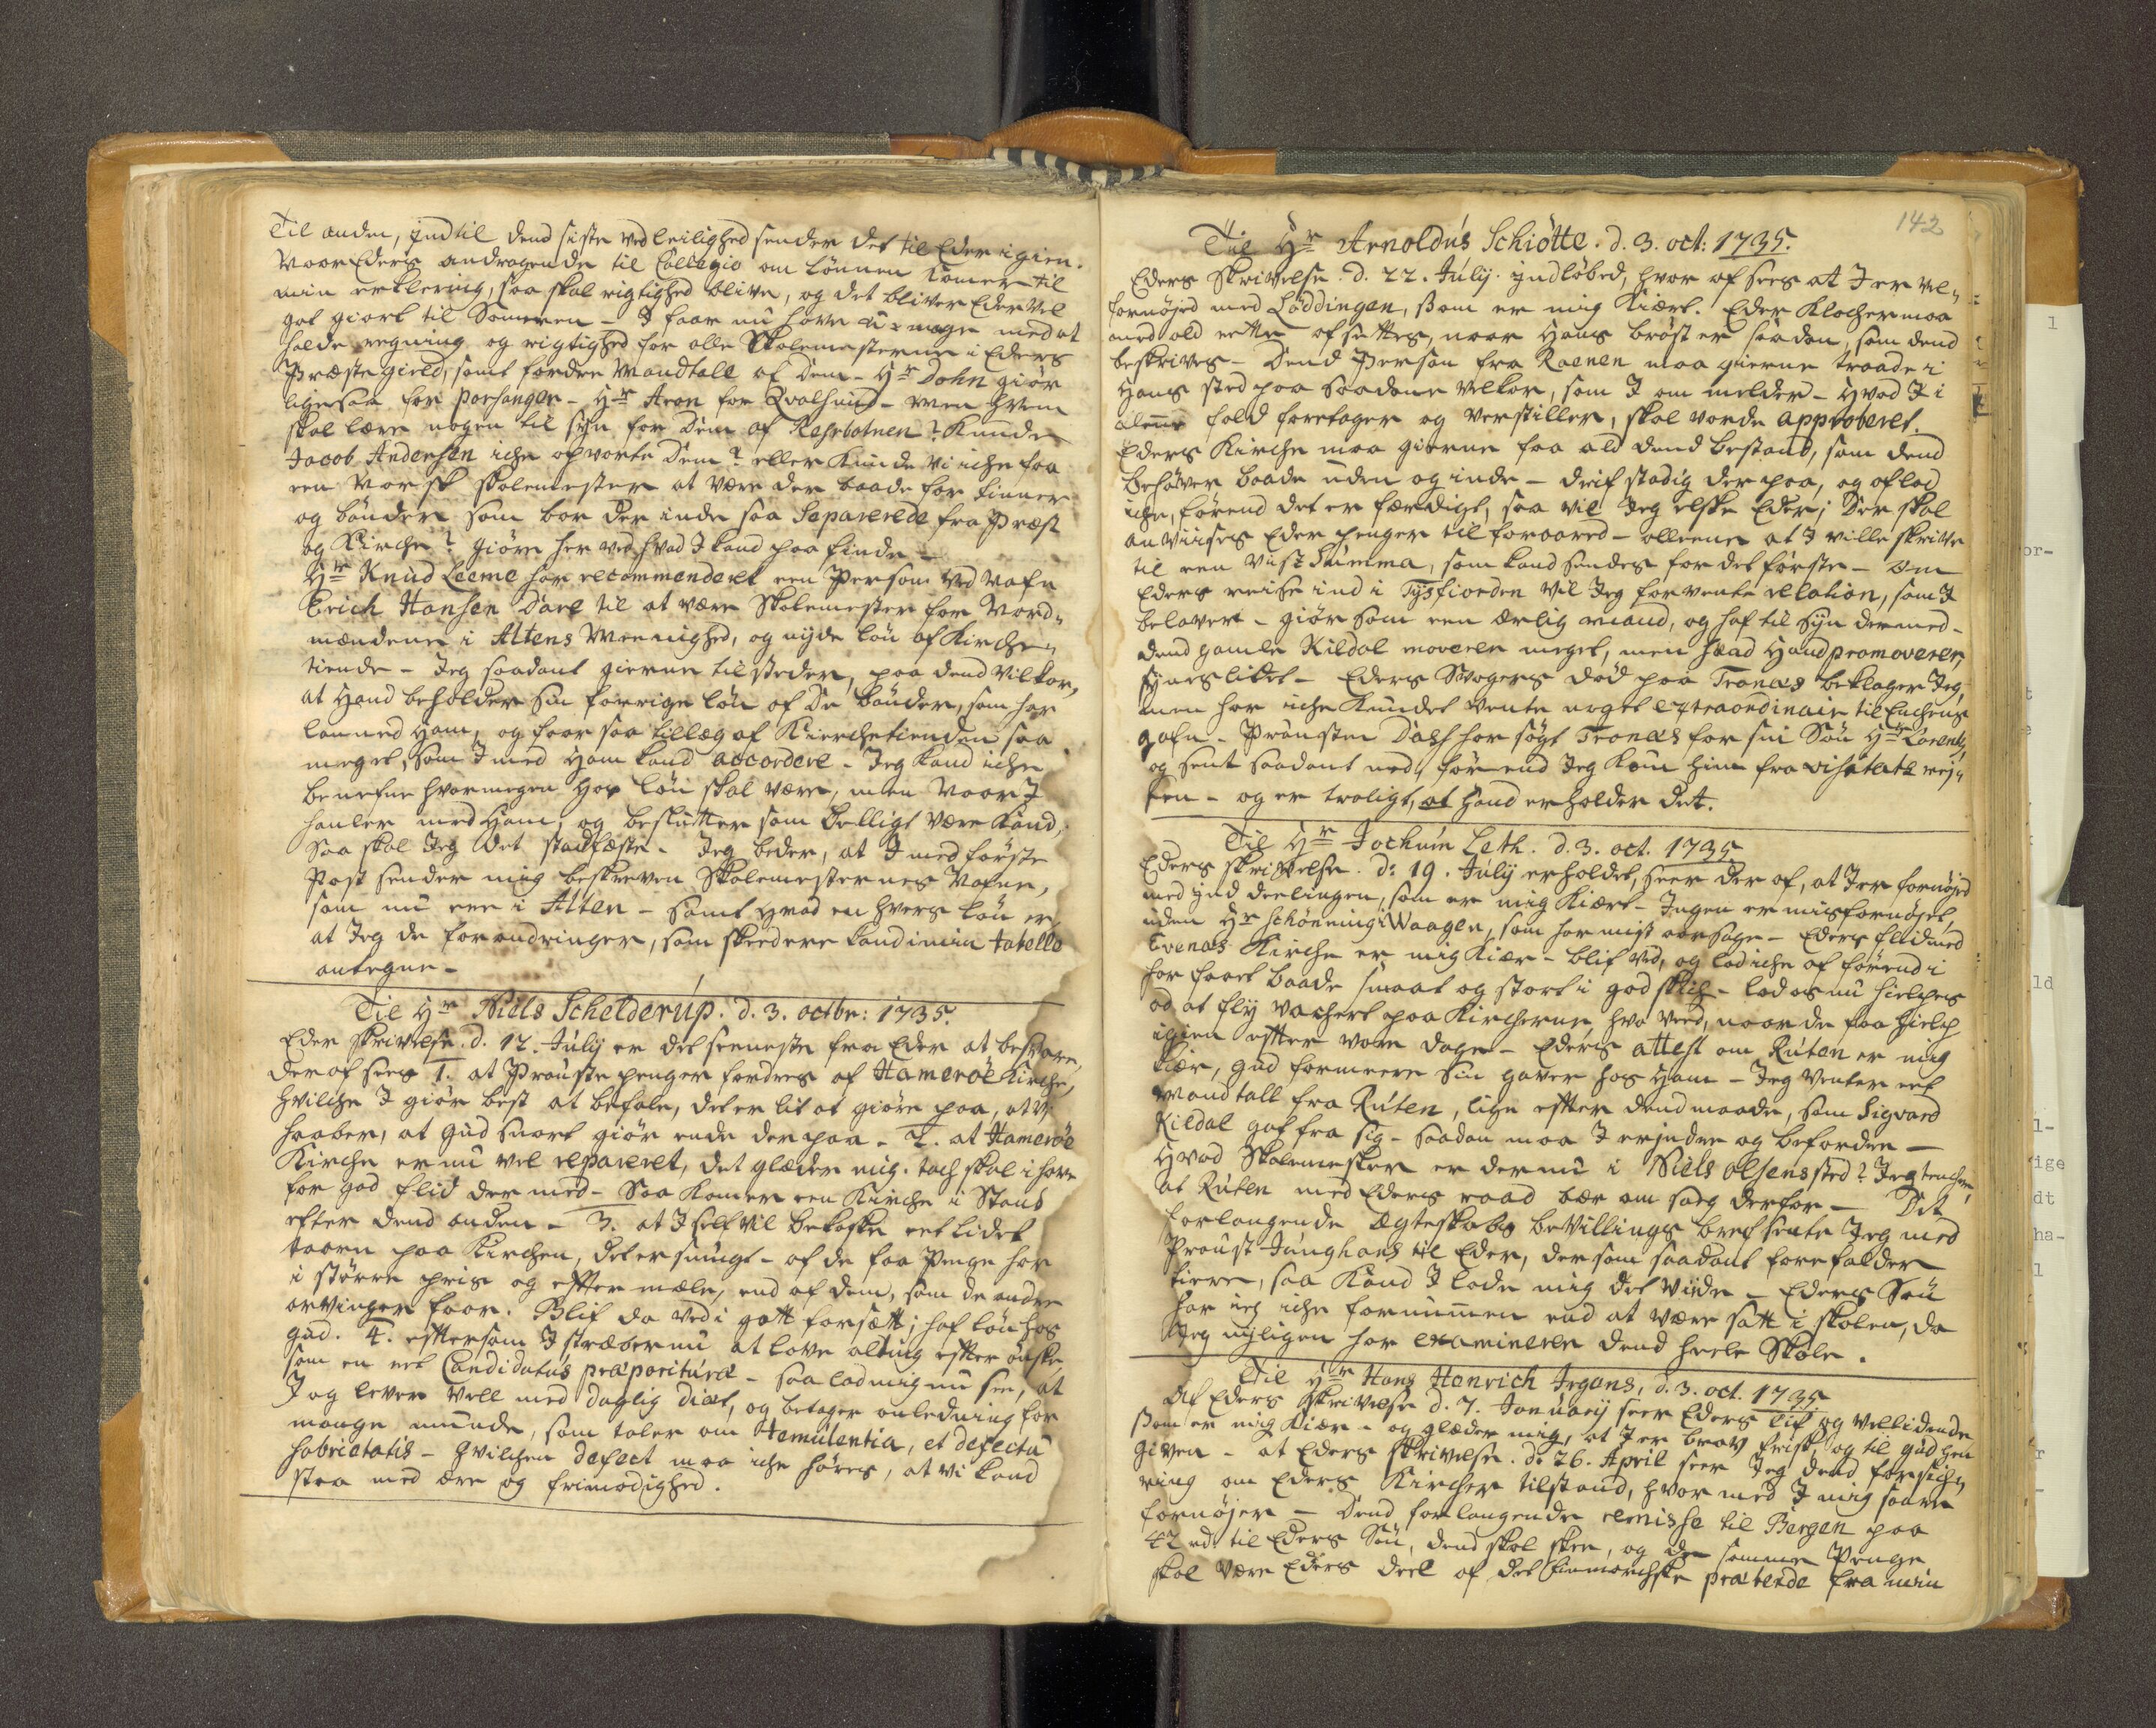 Til anden, indtil dend siste ved leilighed sender det til Eder igien.
Naar Eders andragende til Collegio om lønnen kommer til
min erklering, saa skal rigtighed blive, og det bliver Eder vel
got giort til Sommeren - I faar nu have u-mage med at
holde regning og rigtighed for alle Skolemesterne i Eders
Præstegield, samt fordre Mandtall af dem - Hr Dohn giør
ligesaa for Porsanger - Hr Aron for Qvalsund - men hvem
skal lære nogen til syn for dem af Refsbotnen? Kunde
Jacob Andersen iche opvarte dem? eller kunde vi iche faa
een Norsk skolemester at være der baade for finner
og bønder som bor der inde saa Separerede fra Præst
og Kirche? giøre her ved hvad I kand paa finde -
Hr Knud Leeme har recommenderet een Person ved Nafn
Erich Hansen Dare til at være Skolemester for Nord-
mændene i Altens Meenighed, og nyde løn af Kirche-
tiende - Jeg saadant gierne tilsteder, paa dend vilkor,
at Hand beholder sin forrige løn af de bønder, som har
lønned Ham, og faar saa tillæg af Kierchetienden saa
meget, som I med Ham kand accordere - Jeg kand iche
benefne hvormegen Hs løn skal være, men naar I
handler med Ham, og beslutter som billigt være kand,
saa skal Jeg det stadfæste - Jeg beder, at I med første
Post sender mig beskreven Skolemesternes Nafne,
som nu ere i Alten - samt hvad en hvers løn er,
at Jeg de forandringer, som skeed ere kand i min tabella
antegne -
Til Hr Niels Schelderup. d. 3. octbr: 1735.
Eder skrivelse d. 12. July er det seeneste fra Eder at besvare,
der af sees 1. at Prouste penger fordres af Hamerøe Kirche,
hvilche I giør best at befale, det er lit at giøre paa, at vi
haaber, at Gud snart giør ende der paa - 2. at Hamerøe
Kirche er nu vel repareret, det glæder mig. tach skal i have
for god flid der med - Saa kommer een Kirche i Stand
efter dend anden - 3. at I self vil bekoste eet lidet
taarn paa Kirchen, det er smugt - af de faa Penge har
i større pris og efftermæle, end af dem, som de andre
arvinger faar. Blif da ved i gott forsætt; haf løn hos
Gud. 4. efftersom I stræber nu at lave alting effter ønske
som en ret Candidatus præpositura - saa lad mig nu see, at
I og lever vell med daglig diæt, og betager anledning for
mange munde, som taler om temulentia, et defectu
sobrietatis - hvilchen defect maa iche høres, at vi kand
staa med ære og frimodighed.
142
Til Hr Arnoldus Schiøtte. d. 3. oct: 1735.
Eders Skrivelse d. 22. July indløbed, hvor af sees at I er vel
fornøjed med Loddingen, som er mig kiært. Eder Klocher maa
med ald rette afsættes, naar Hans brøst er saadan, som dend
beskrives - Dend Person fra Raenen maa gierne traade i
Hans sted paa saadane velkor, som I om melder - Hvad I i
fald foretager og verstiller, skal vorde approberet.
Eders Kirche maa gierne faa ald dend bestand, som dend
behøver baade uden og inde - drif stadig der paa, og aflad
iche, førend det er færdigt, saa vil Jeg elske Eder; der skal
anviises Eder penger til foraared - alleene at I ville skrive
til een vist Summa, som kand sendes for det første - om
Eders reise ind i Tysfiorden vil Jeg forvente relation, som I
belaver - giør som een ærlig mand, og haf til syn dermed -
dend gamle Kildal moverer meget, men hvad Hand promoverer,
synes lidet - Eders Svogers død paa Tronæs beklager Jeg,
men har iche kundet vente noget extraordinair til Enchens
gafn - Prousten Dass har søgt Tronæs for sin Søn Hr Lorentz,
og sent saadant ned, førend Jeg kom him fra visitatz rej-
sen - og er troligt, at Hand erholder det.
Til Hr Jochum Leth. d. 3. oct. 1735.
Eders skrivelse d: 19. July erholdet, seer der af, at I er fornøjed
med inddeelingen, som er mig kiært - Ingen er misfornøjet,
uden Hr Schønning i Waagen, som har mist aarsage - Eders flid med
Evenæs Kirche er mig kiær - blif ved, og lad iche af førend i
har faaet baade smaat og stort i god skich - lad os nu hielpes
ad at fly vachert paa Kircherne, hvo veed, naar de faa hielp
igien effter vore dage - Eders attest om Ruten er mig
kiær, Gud formeere sin gaver hos Ham - Jeg venter eet
Mandtall fra Ruten, lige effter dend maade, som Sigvard
Kildal gaf fra sig - saadan maa I erindre og befordre -
Hvad Skolemester er der nu i Niels Olsens sted? Jeg tencher,
at Ruten med Eders raad bær om sorg derfor - Dit
forlangende Ægteskabs bevillings bref sente Jeg med
Proust Junghans til Eder, dersom saadant forefalder
tiere, saa kand I lade mig det viide - Eders Søn
har ieg iche fornummen end at være satt i skolen, da
Jeg nyligen har examineret dend heele Skole.
Til Hr Hans Henrich Irgens, d. 3. oct. 1735
Af Eders skrivelse d. 7. January seer Eders lif og vellidende
som er mig kiær - og glæder mig, at I er brav frisk, og til Gud hen
given - at Eders skrivelse d: 26. April seer Jeg dend forsich-
ring om Eders Kircher tilstand, hvormed I mig saare
fornøjer - Dend forlangende remisse til Bergen paa
42 rd til Eders Søn, dend skal skee, og de samme Penge
skal være Eders deel af det finmarchske præbende fra min